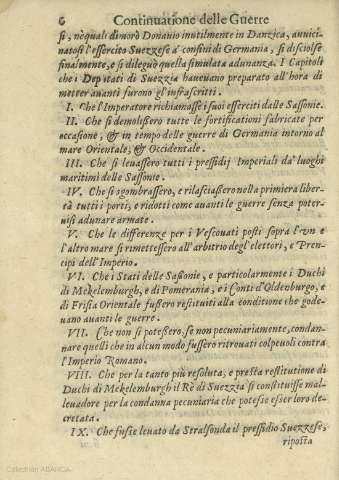 6 Continuatione delle Guerre
si, ne quali dimorò Donauio inutilmente in Danzica, auuici-
natosi l'essercito Suezzese à confini di Germania, si disciolse
finalmente, e si dileguò quella simulata adunanza. I Capitoli
che i Deputati di Suezzia haueuano preparato all'hora di
metter auanti furono gl'infrascritti.
I. Che l'Imperatore richiamasse i suoi esserciti dalle Sassonie.
II. Che si demolissero tutte le fortificationi fabricate per
occasione, & in tempo delle guerre di Germania intorno al
mare Orientale, & Occidentale.
III. Che si leuassero tutti i pressidij Imperiali da' luoghi
maritimi delle Sassonie.
IV. Che si sgombrassero, e rilasciassero nella primiera liber-
tà tutti i porti, e ridotti come auanti le guerre senza poter-
uisi adunare armate.
V. Che le differenze per i Vescouati posti sopra l'vn e
l'altro mare si rimettessero all'arbitrio degl'elettori, e Pren-
cipi dell'Imperio.
VI. Che i Stati delle Sassonie, e particolarmente i Duchi
di Mekelemburgh, e di Pomerania, e i Conti d'Oldenburgo, e
di Frisia Orientale fussero restituiti alla conditione che gode-
uano auanti le guerre.
VII. Che non si potessero, se non pecuniariamente, condan-
nare quelli che in alcun modo fussero ritrouati colpeuoli contro
l'Imperio Romano.
VIII. Che per la tanto più resoluta, e presta restitutione di
Duchi di Mekelemburgh il Rè di Suezzia si constituisse mal-
leuadore per la condanna pecuniaria che potesse esser loro de-
cretata.
IX. Che fusse leuato da Stralsonda il pressidio Suezzese,
riposta
Colección ABANCA